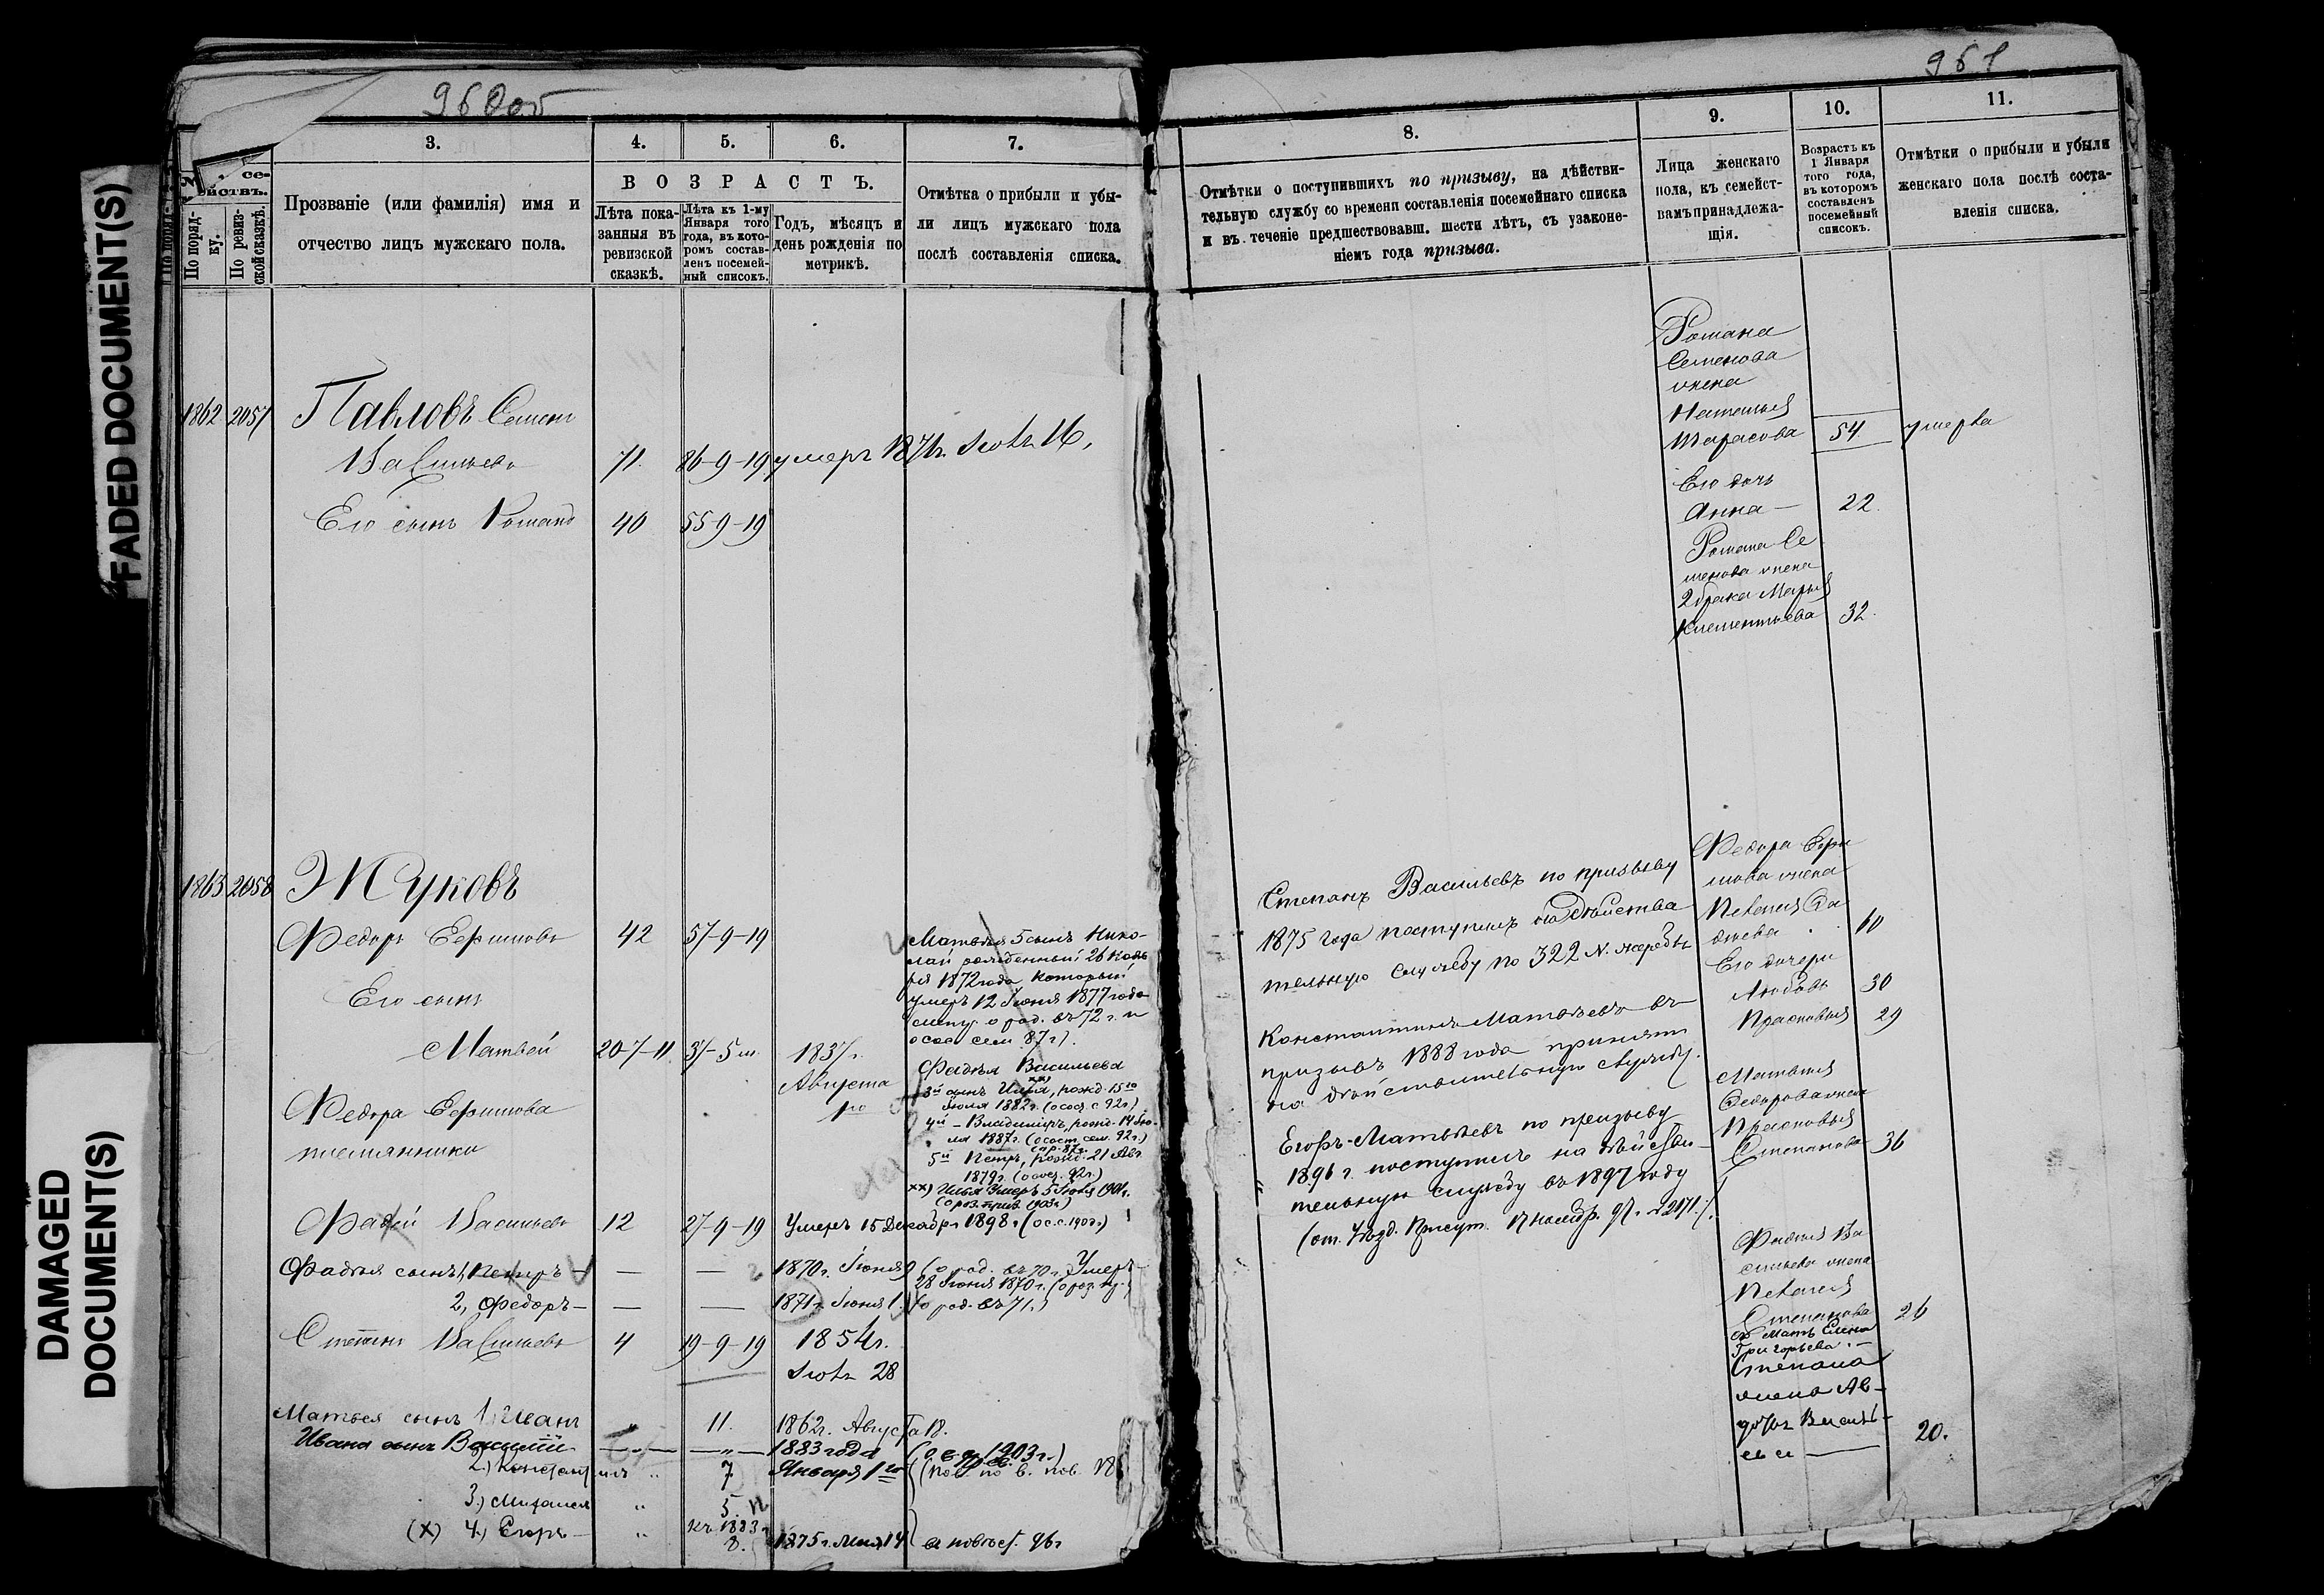 960об
961
FADED DOCUMENT(S)
DAMAGED DOCUMENT(S)
3.
4.
5.
6.
7.
се-
ействъ.
По порядку.
По ревизской сказкѣ.
Прозваніе (или фамилія) имя и
отчество лицъ мужскаго пола.
ВОЗРАСТЪ.
Лѣта пока-
занныя въ
ревизской
сказкѣ.
Лѣта къ 1-му
Января того
года, въ кото-
ромъ состав-
ленъ посемей-
ный списокъ.
Годъ, мѣсяцъ и
день рожденія по
метрикѣ.
Отмѣтка о прибыли и убы-
ли лицъ мужскаго пола
послѣ составленія списка.
1862 2057 Павловъ Семенъ
Васильевъ 71. 86-9-19 умеръ 1871г. 16.
Его сынъ Романъ 40 55-9-19
1863 2058 Жуковъ
Федоръ Ефимовъ 42 57-9-19
Матвѣя 5 сынъ Нико-
лай рожденный 26 Нояб
ря 1872 года который
умеръ 12 Іюня 1877 года
о род. въ 72 г. и
87 г).
Его сынъ
Матвѣй 20-7-11 37-5 м. 1837г.
Августа
Фадѣя Васильева
3й сынъ Илья, рожд. 15го
Іюля 1882г. (о сос. с 92г.)
4й - Владиміръ, рожд. 14 Ію-
ля 1887г. (о сост. сем. 92г.)
5й Петръ, рожд. 21 Авг.
1879г. (о сос. 92г.)
хх) Илья Умеръ 5 1901г.
(о роз. приз. 1903г.)
Федора Ефимова
племянники
Фадей Васильевъ 12 27-9-19 Умеръ 15 Декабря 1898г (о с. с. 190 г.)
Фадѣя сынъ 1, Петръ — — — 1870г. Іюня 9 (о род. въ 70г. Умеръ
28 Іюня 1870г.
2, Федоръ — — — 1871г. Іюня 1. (о род. въ 71.)
Степанъ Васильевъ 4 19-9-19 1854г.
28
Матвѣя сынъ 1, Иванъ " 11. 1862г. Августа 18.
Ивана сынъ Василій — " — — " — 1883 года 1903г.)
2.) Константинъ " 7 Января 1го
3.) Михаилъ " 5.
(х) 4.) Егоръ — " къ 1883г 8. 1875г. 14 96г
8.
9.
10.
11.
Отмѣтки о поступившихъ по призыву, на дѣйстви-
тельную службу со времени составленія посемейнаго списка
и въ теченіе предшествовавш. шести лѣтъ, съ узаконе-
ніемъ года призыва.
Лица женскаго
пола, къ семейст-
вамъ принадлежа-
щія.
Возрастъ къ
1 Января
того года,
въ которомъ
составленъ
посемейный
списокъ.
Отмѣтки о прибыли и убыли
женскаго пола послѣ соста-
вленія списка.
Романа
Семенова
жена
Наталья
Тарасова 54 умерла
Его дочь
Анна — 22.
Романа Се
менова жена
2 брака Марья
Клементьева 32.
Степанъ Васильевъ по призыву
1875 года поступилъ на дѣйстви
тельную службу по 322 N. жеребья
Константинъ Матвѣевъ въ
призывъ 1888 года принятъ
на дѣйствительную службу.
Егоръ Матвѣевъ по призыву
1896 г. поступилъ на дѣйстви-
тельную службу въ 1897 году
(от. Уѣзд. Присут. 97г. №2171.)
Федора Ефи
мова жена
Пелагея
60
Его дочери
Любовь 30
Прасковья 29
Матвѣя
Федорова жена
Прасковья
Степанова 36
Фадѣя Ва
сильева жена
Пелагея
Степанова 26
Мать Елена
Григорьева. —
Степана
жена Ав-
дотья Василь-
ева — 20.